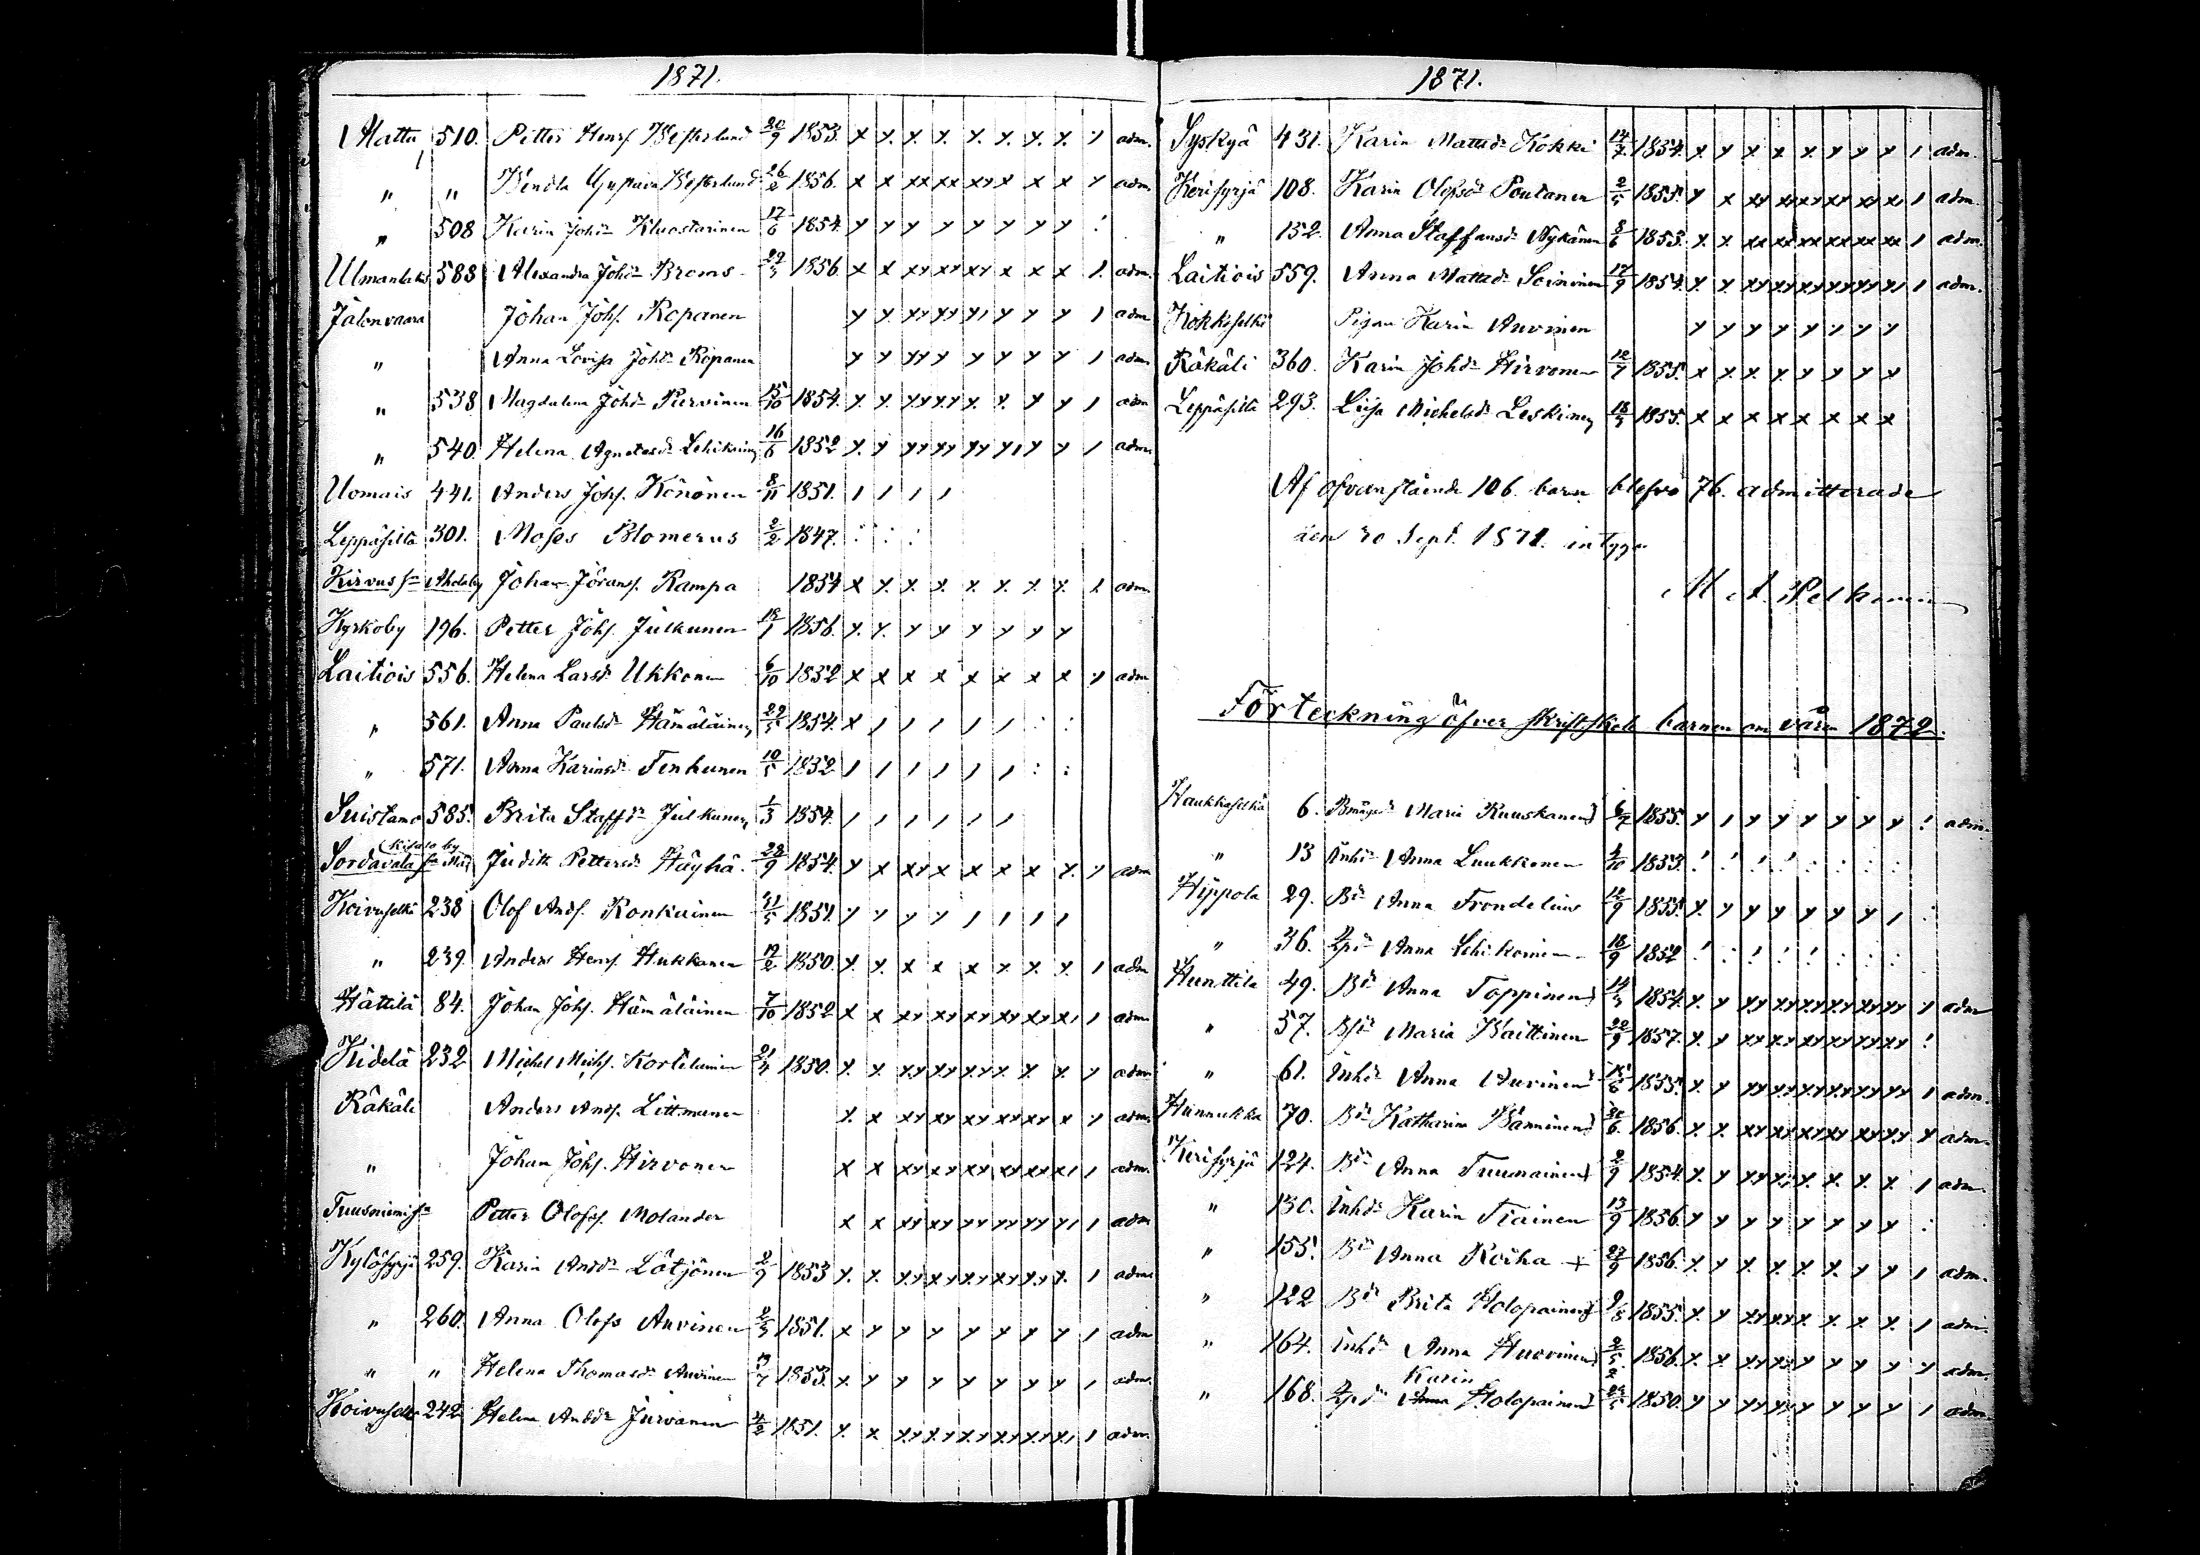 1871.
Mattu 510. Petter Henrs. Westerlund 20/9 1853. x x. x. x. x. x. x. x. 1 adm.
" " Wendla Gustava Westerlund 26/2 1856. x x xx xx xx x x x x adm.
" 508 Karin Johsdr Kluostarinen 17/6 1854. y y y y y y y y :
Ulmanlaks 588 Alexandra Johdr Broms 29/3 1856. x x xx xx xx x x x 1. adm.
Jalonvaara Johan Johs. Ropanen y y. yy yy yy y y y 1 adm
" Anna Lovisa Johdr Ropanen y y yy y y y y y 1 adm.
" 538 Magdalena Johdr Purvinen 15/10 1854. y. y. yy yy y. y. y y 1 adm
" 540. Helena Agnetasdr Lehikoinen 16/6 1852 y. y yy yy yy yy y y 1 adm
Uomais 441. Anders Johs. Könönen 8/11 1851. 1 1 1 1
Leppäsilta 301. Moses Blomerus 2/2 1847. : : :
Kirvus sn Aholaby Johan Jörans. Rampa 1854 x x. x. x. x. x. x. x. 1. adm.
Kyrkoby 196. Petter Johs. Julkunen 18/1 1856. y. y. y y y y y y
Laitiois 556. Helena Larsdr Ukkonen 6/10 1852 x x x x x x x x y adm
" 561. Anna Paulsdr Hämäläinen 29/5 1854. x 1 1 1 1 1 : :
" 571. Anna Karinsdr Tenhunen 10/5 1852 1 1 1 1 1 1 : :
Suistamo 585. Brita Staffdr Julkunen 1/3 1854. 1 1 1 1 1 1
Sordavala sn Judith Pettersdr Häyhä. 28/9 1854. y x xx x x x x x. y adm
Koivuselkä 238 Olof Ands. Ronkainen 21/5 1851. y y y y 1 1 1 1
" 239. Anders Henrs. Hukkanen 19/2 1850. y. y. x x x x. x. x. 1 adm
Hättilä 84. Johan Johs. Hämäläinen 7/10 1852 x x xx xx xx xx xx x 1 adm
Kidelä 232 Michel Michs. Kortelainen 21/4 1850. x. x. xx xx xx x x. x. y adm
Räkäli Anders Ands. Littmanen x. x xx xx xx xx xx x y adm.
" Johan Johs. Hirvonen x x xx xx xx xx xx x 1 adm.
Tuusniemi sn Petter Olofss. Molander x x xx xx xx xx xx y 1 adm
Kylösyrjä 259. Karin Andsdr Lötjönen 2/9 1853 x. x. xx xx xx xx xx x. 1 adm
" 260. Anna Olofs Auvinen 2/3 1851. x y y y y y y y 1 adm
" " Helena Thomasdr Auvinen 13/7 1853. x. y y y y y y y 1 adm.
Koivuselkä 242 Helena Andsdr Jurvanen 4/2 1851. x. x. xx xx xx xx xx x 1 adm.
1871.
Syskyä 431. Karin Mattsdr Kokki 14/7 1854. x. y x x x. y y y 1 adm.
Kerisyrjä 108. Karin Olofsdr Poutanen 2/5 1855. y x xx xx xx xx xx 1 adm.
" 152. Anna Staffansdr Nykänen 8/6 1853. x. x xx xx xx xx xx 1 adm.
Laitiois 559. Anna Mattsdr Soininen 17/9 1854. x. x. xx xx xx xx xx 1 adm.
Kokkoselkä Pigan Karin Auvinen y y y y y y y y
Räkäli 360. Karin Johdr Hirvonen 12/7 1855. x x. x. y. y y y x
Leppäsilta 293. Lisa Michelsdr Leskinen 18/3 1855. x x x x x x x x
Af ofvanstående 106. barn blefvo 76. admitterade
den 20 Sept. 1871. intyga
Förteckning öfver skriftskolebarnen om våren 1872.
Haukkaselkä 6. Maria Ruuskanen 6/7 1855. y 1 y y y y y y ! adm.
" 13 Inhdr Anna Luukkonen 1/10 1853. ! ! ! ! : : : :
Hippola 29. Bdr Anna Frondelius 12/9 1855. x. y y y y y y 1 :
" 36. Anna Lehikoinen 18/9 1852 ! : ! ! ! : : :
Hunttila 49. Bdr Anna Toppinen 14/3 1854. x. y xx xx xx xx xx y adm
" 57. Maria Waittinen 22/9 1857. x. y xx xx xx xx xx !
" 61. Inhdr Anna Auvinen 15/6 1855. x. y xx xx xx xx xx 1 adm.
Hännukka 70. Bdr Katharina Wänninen 30/6 1856. x. x. xx xx xx xx xx y adm.
Kerisyrjä 124. Bdr Anna Tuunainen 2/9 1854. x. x. xx xx x. x. x. x. 1 adm.
" 130. Inhdr Karin Tiainen 13/9 1856. y y y y y y y y :
" 155. Bdr Anna Roiha + 23/9 1856. x. x. x. x. x. x. y y 1 adm.
" 122 Bdr Brita Holopainen 9/8 1855. x. y xx xx x. x. x. x. 1 adm.
" 164. Inhdr Anna Huovinen 2/5 1856. x. x. xx xx y y y y y adm.
Karin
" 168. Anna Holopainen 24/5 1850. y y yy yy y y y y 1 adm.